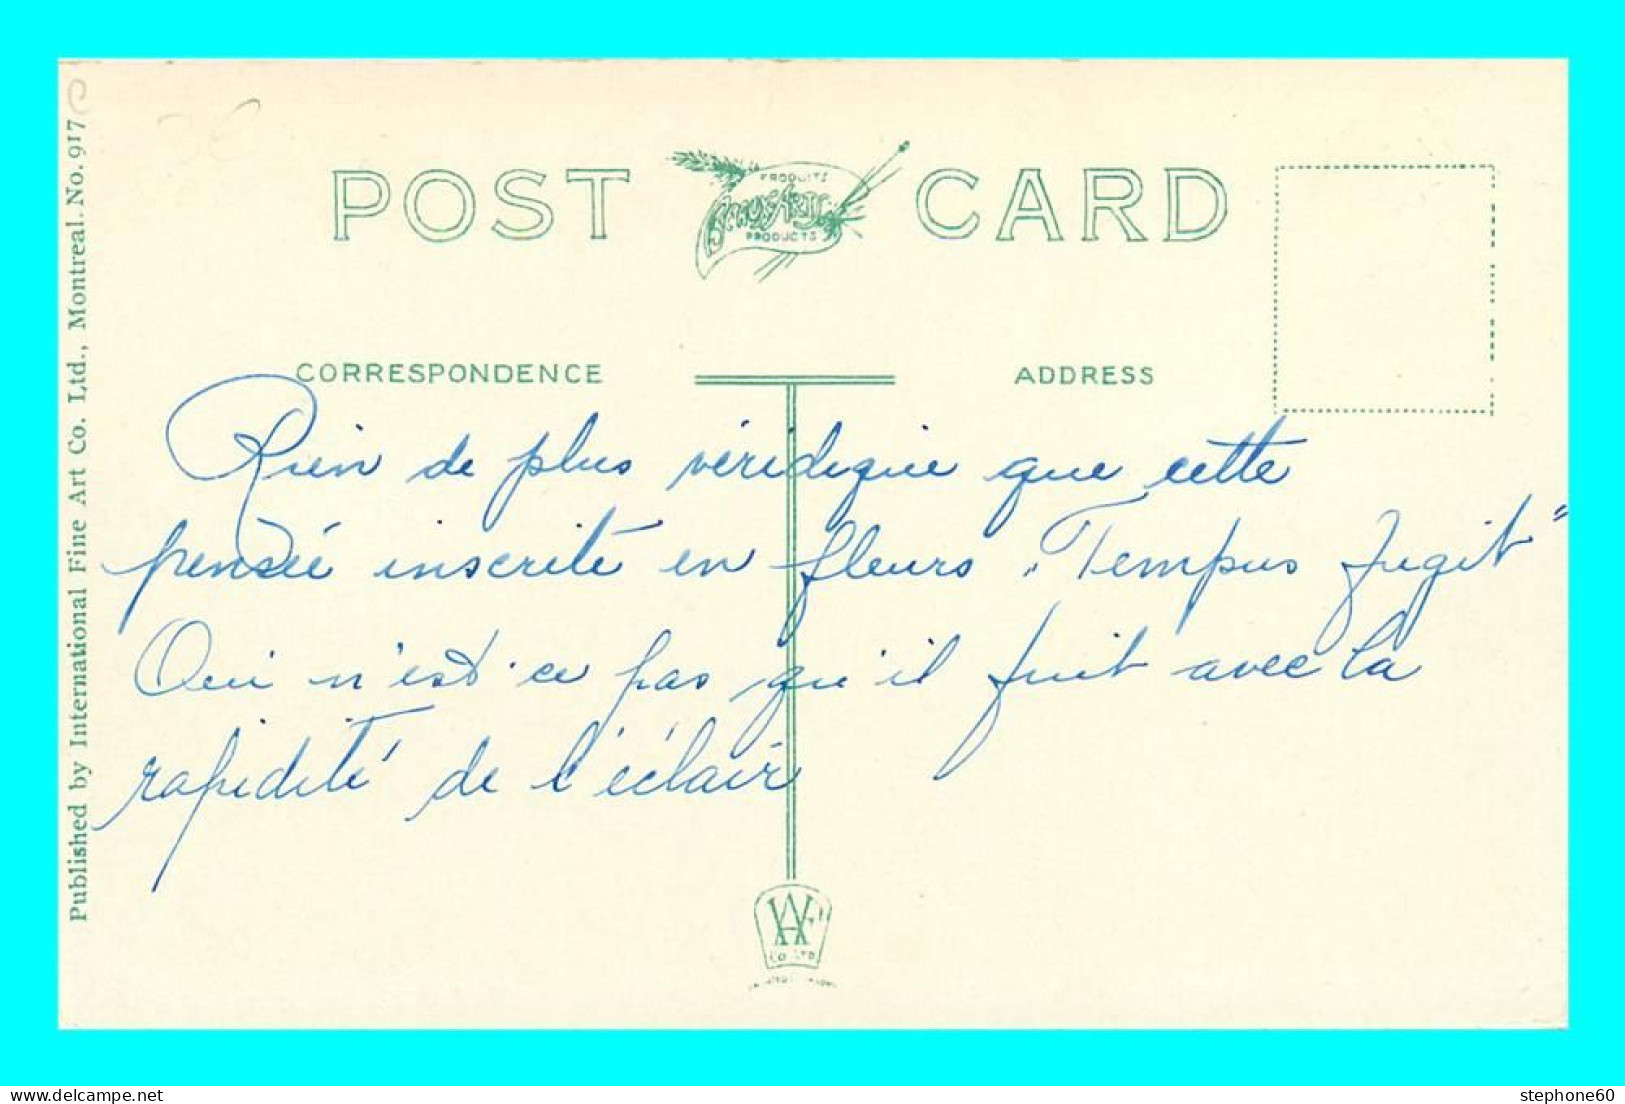 POST CARD
PRODUITS
BEAUX-ARTS
PRODUCTS
CORRESPONDENCE
ADDRESS
Rien de plus véridique que cette
pensée inscrite en fleurs "Tempus fugit"
Oui n'est-ce pas qu'il fuit avec la
rapidité de l'éclair
Published by International Fine Art Co. Ltd., Montreal. No. 917
CO LTD
stephone60